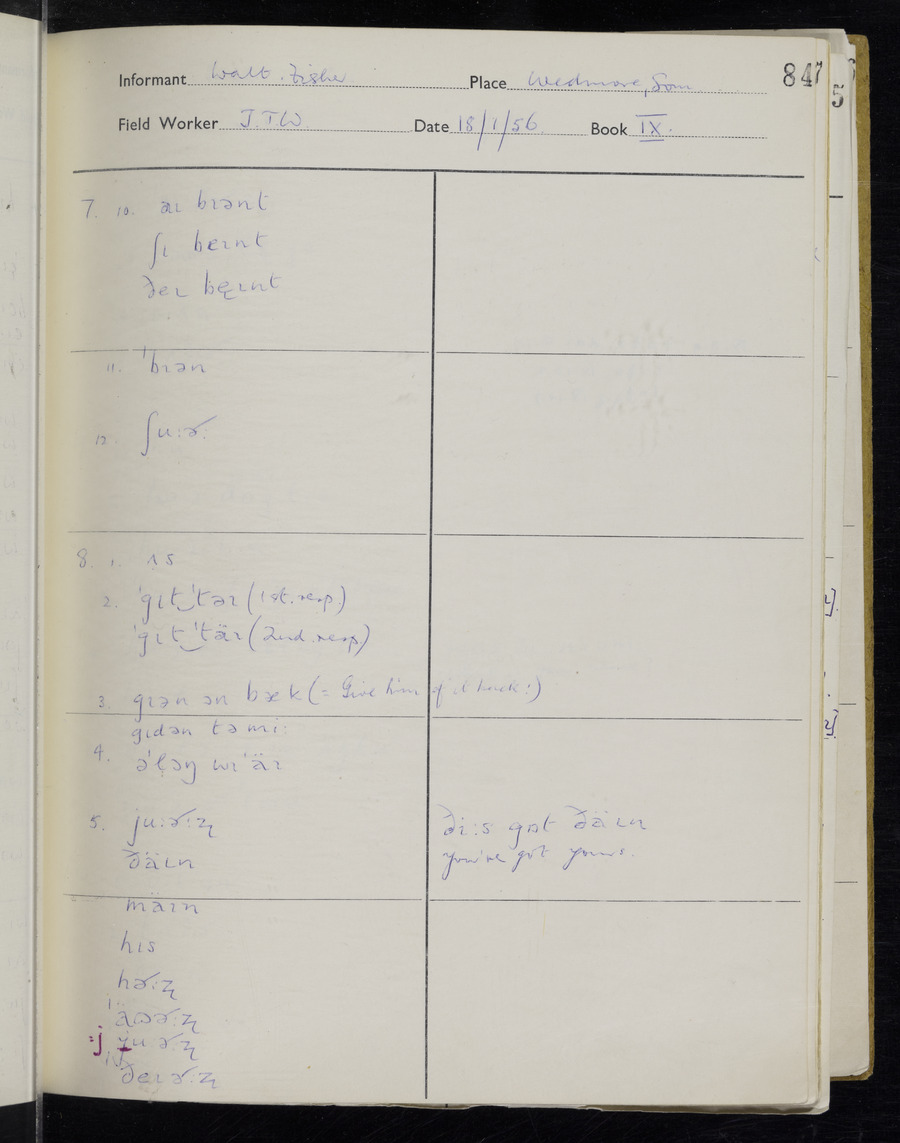 Informant Walt. Fisher Place Wedmore, Som 847
5
Field Worker J.T.W. Date 18/1/56 Book IX.
7. 10. æɪ bɪənt
ʃɪ beɪnt
ðeɪ bęɪnt
11. ˈbɪən
12. ʃu:ɚ:
8. 1. ʌs
2. ˈgɪt‿ˈtəɪ (1st. resp.)
ˈgɪt‿ˈtäɪ (2nd. resp)
3. gɪən ən bæk (= Give him of it back!)
gɪdən tə mi:
4. əˈləŋ wɪˈäɪ
5. ju:ɚ:ʐ
ði:s gɒt ðäɪn
ðäɪn
you've got yours.
mäɪn
hɪs
hɚ:ʐ
äʊɚ:ʐ
:j ju:ɚ:ʐ
ðeɪɚ:ʐ